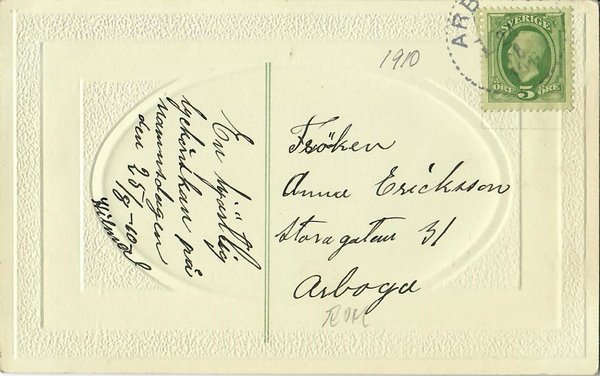 En hjärtlig
lyckönskan på
namnsdagen
den 25/8-10
1910
ARB
SVERIGE
ÖRE 5 ÖRE
Fröken
Anna Ericksson
Storagatan 31
Arboga